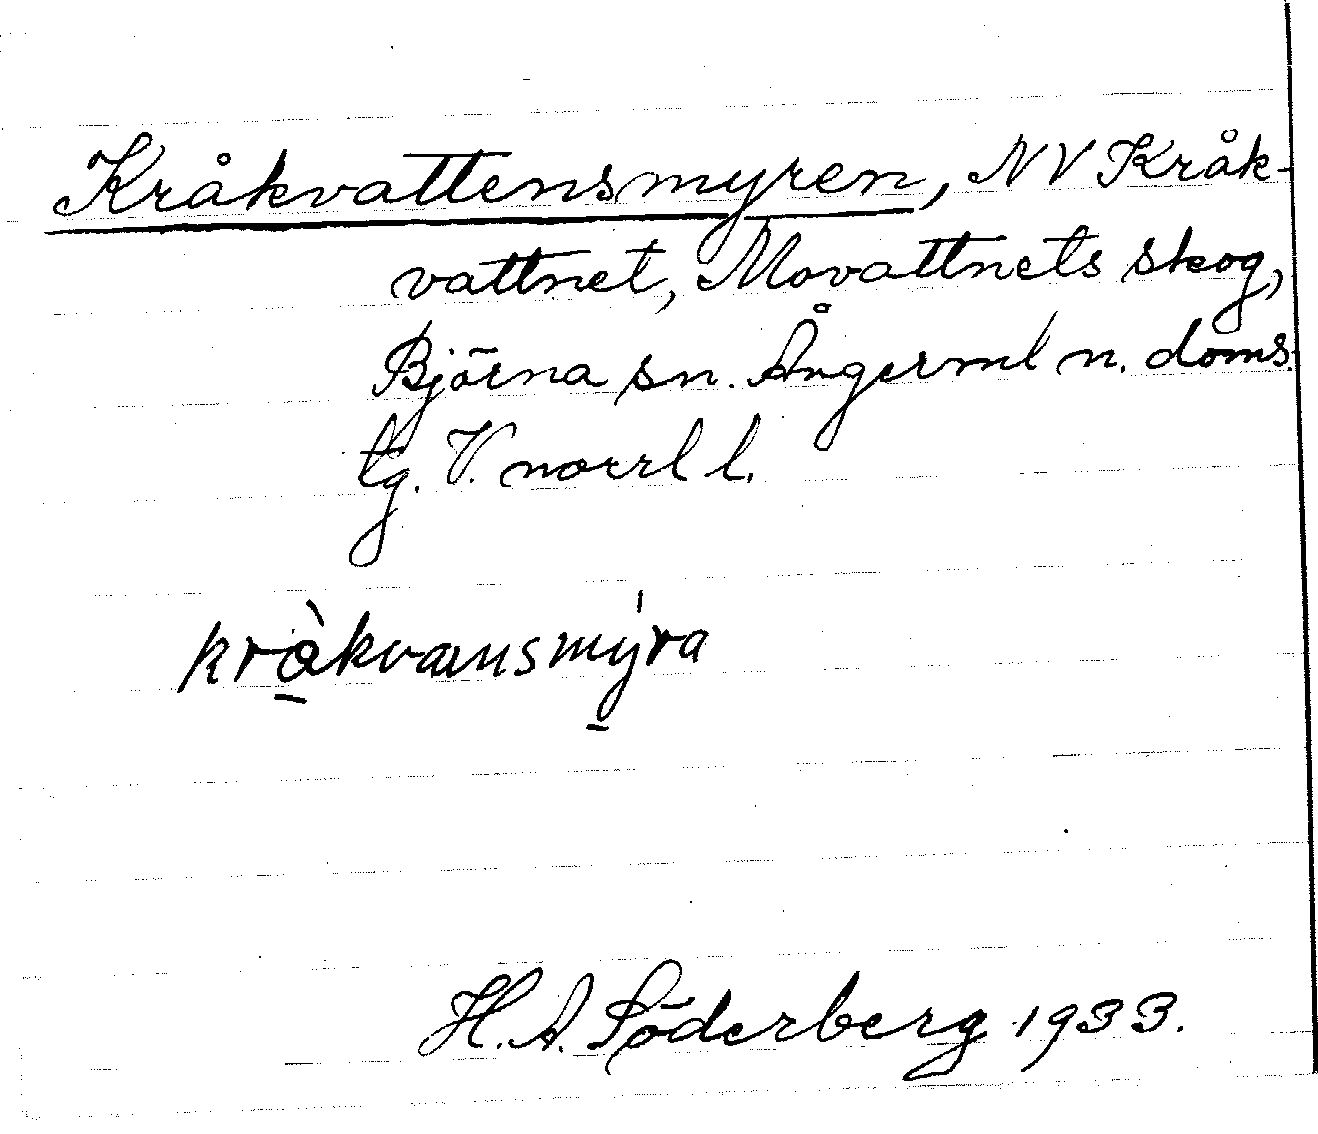 Kråkvattensmyren, NV Kråk-
vattnet, Movattnets skog,
Björna sn. Ångerml n. doms.
tg. V. norrl l.
kråkvansmyra
H. A. Söderberg 1933.